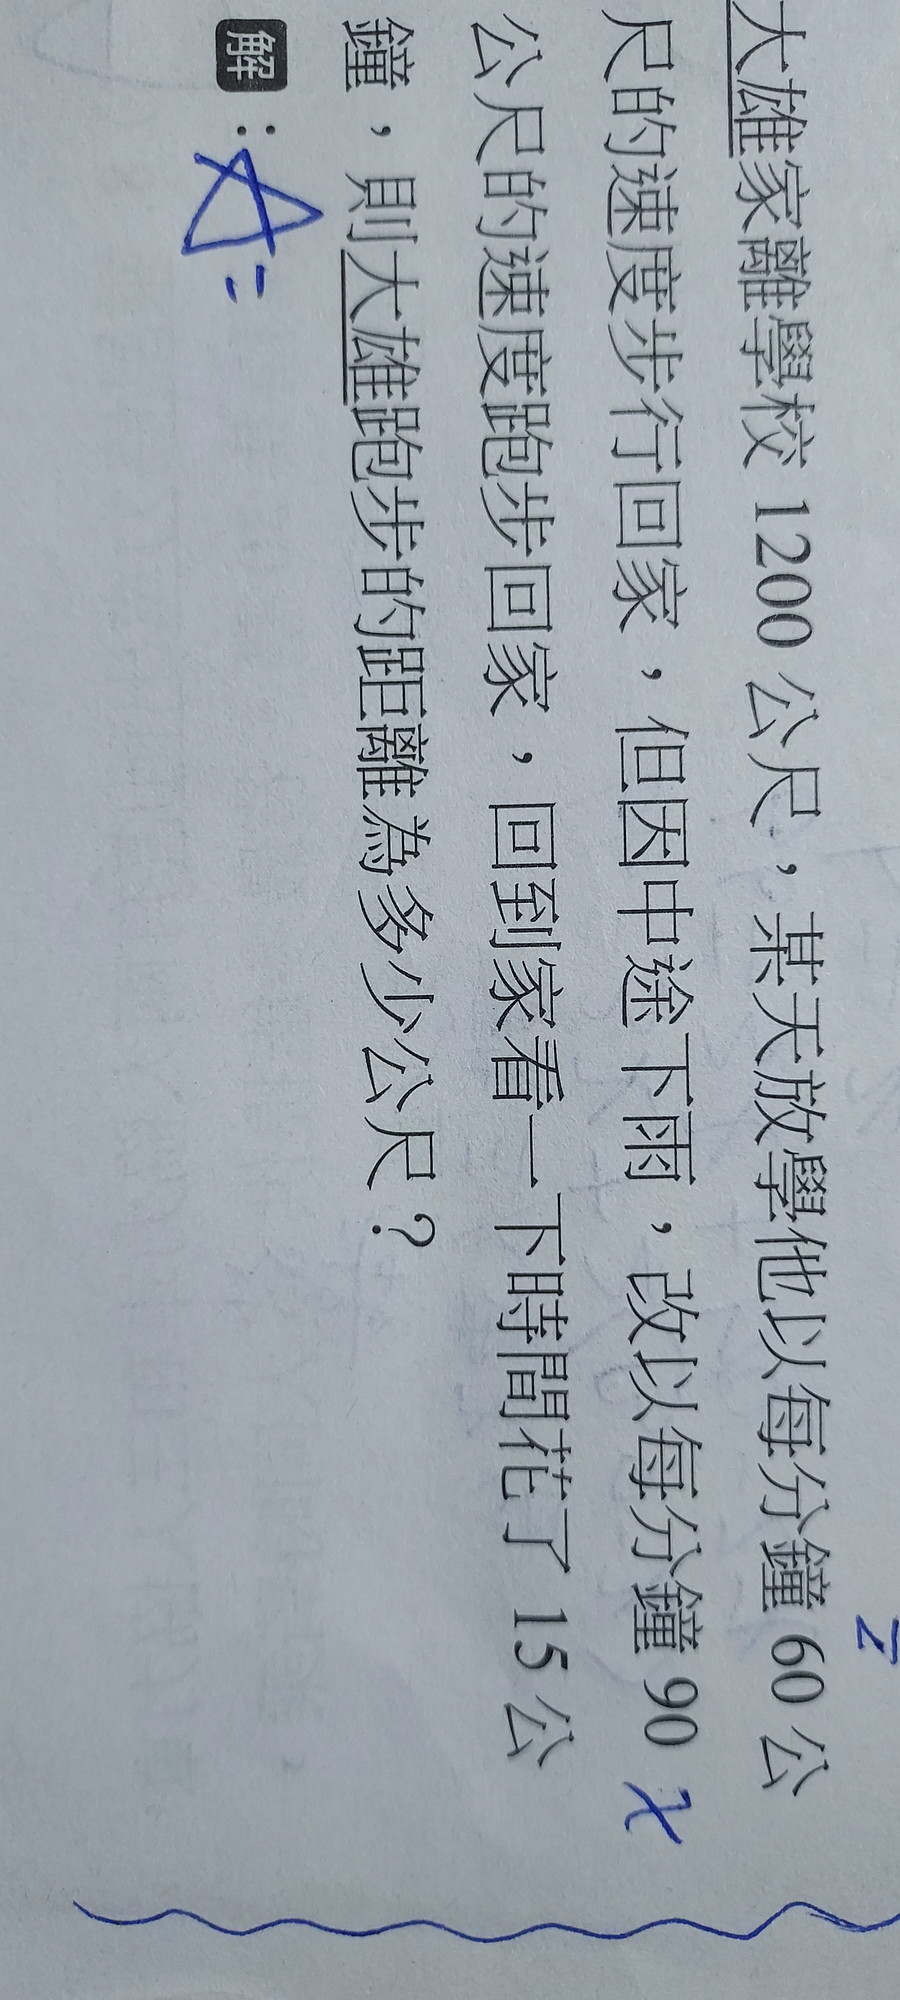 大雄家離學校 1200 公尺，某天放學他以每分鐘 60 公
尺的速度步行回家，但因中途下雨，改以每分鐘 90
公尺的速度跑步回家，回到家看一下時間花了 15 公
鐘，則大雄跑步的距離為多少公尺？
解：
x